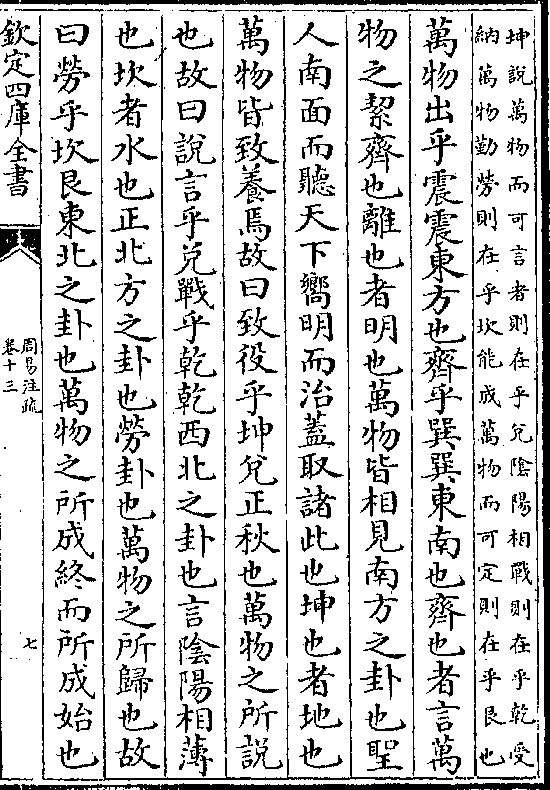 坤說萬物而可言者則在乎兌陰陽相戰則在乎乾受
納萬物勤勞則在乎坎能成萬物而可定則在乎艮也
萬物出乎震震東方也齊乎巽巽東南也齊也者言萬
物之絜齊也離也者明也萬物皆相見南方之卦也聖
人南面而聽天下嚮明而治蓋取諸此也坤也者地也
萬物皆致養焉故曰致役乎坤兌正秋也萬物之所說
也故曰說言乎兌戰乎乾乾西北之卦也言陰陽相薄
也坎者水也正北方之卦也勞卦也萬物之所歸也故
曰勞乎坎艮東北之卦也萬物之所成終而所成始也
欽定四庫全書
周易注疏
卷十三
七